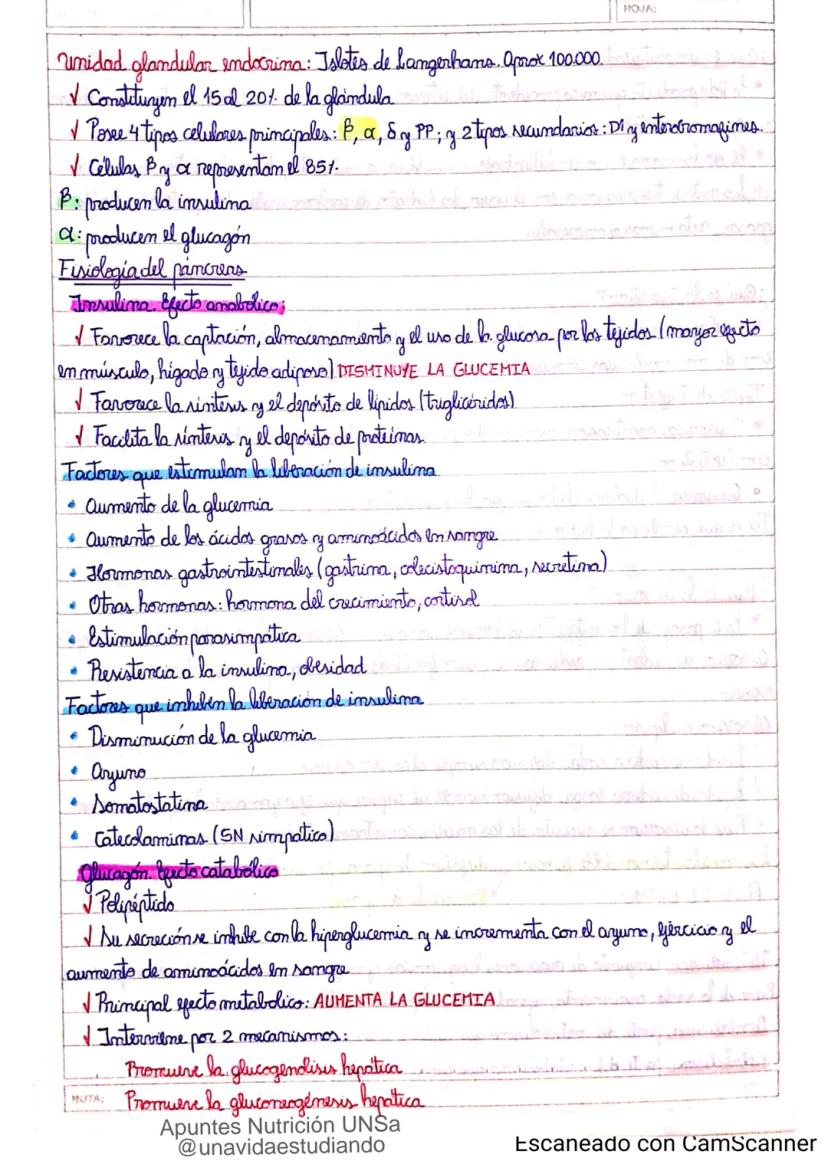 HOJA:
Unidad glandular endocrina: Islotes de Langerhans. Aprox 100.000.
✓ Constituyen el 15 al 20% de la glándula
✓ Posee 4 tipos celulares principales: β, α, δ y PP; y 2 tipos secundarios: D1 y enterocromafines.
✓ Células β y α representan el 85%.
β: producen la insulina
α: producen el glucagón
Fisiología del páncreas
Insulina. Efecto anabólico:
✓ Favorece la captación, almacenamiento y el uso de la glucosa por los tejidos (mayor efecto
en músculo, hígado y tejido adiposo) DISMINUYE LA GLUCEMIA
✓ Favorece la síntesis y el depósito de lípidos (triglicéridos)
✓ Facilita la síntesis y el depósito de proteínas
Factores que estimulan la liberación de insulina
• Aumento de la glucemia
• Aumento de los ácidos grasos y aminoácidos en sangre
• Hormonas gastrointestinales (gastrina, colecistoquinina, secretina)
• Otras hormonas: hormona del crecimiento, cortisol
• Estimulación parasimpática
• Resistencia a la insulina, obesidad
Factores que inhiben la liberación de insulina
• Disminución de la glucemia
• Ayuno
• Somatostatina
• Catecolaminas (SN simpático)
Glucagón. Efecto catabólico
✓ Polipéptido
✓ Su secreción se inhibe con la hiperglucemia y se incrementa con el ayuno, ejercicio y el
aumento de aminoácidos en sangre
✓ Principal efecto metabolico: AUMENTA LA GLUCEMIA
✓ Interviene por 2 mecanismos:
Promueve la glucogenólisis hepática
NOTA: Promueve la gluconeogénesis hepática
Apuntes Nutrición UNSa
@unavidaestudiando
Escaneado con CamScanner